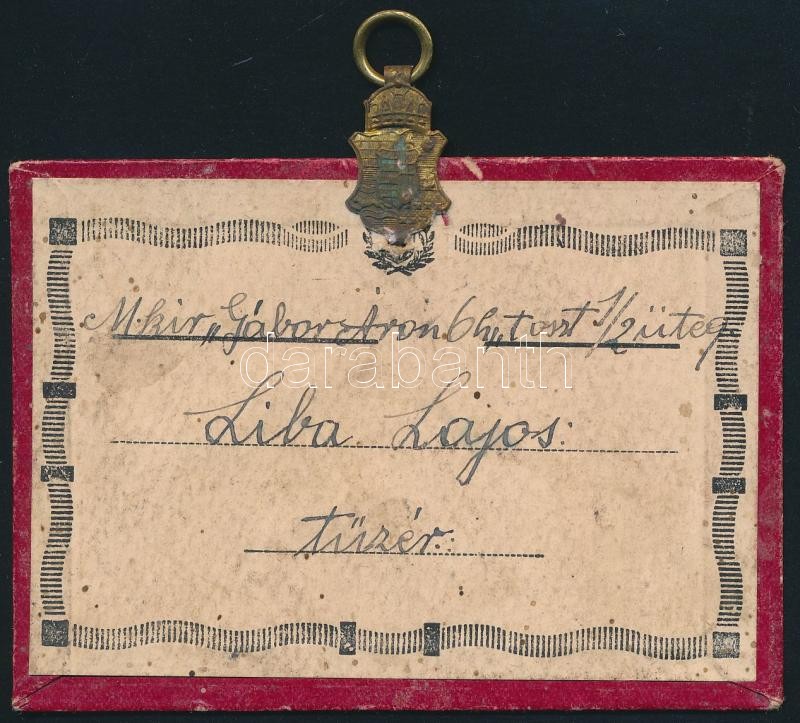 M. kir „Gábor Áron 6 h„ toszt 1/2 üteg
darabanth
Liba Lajos:
tüzér: